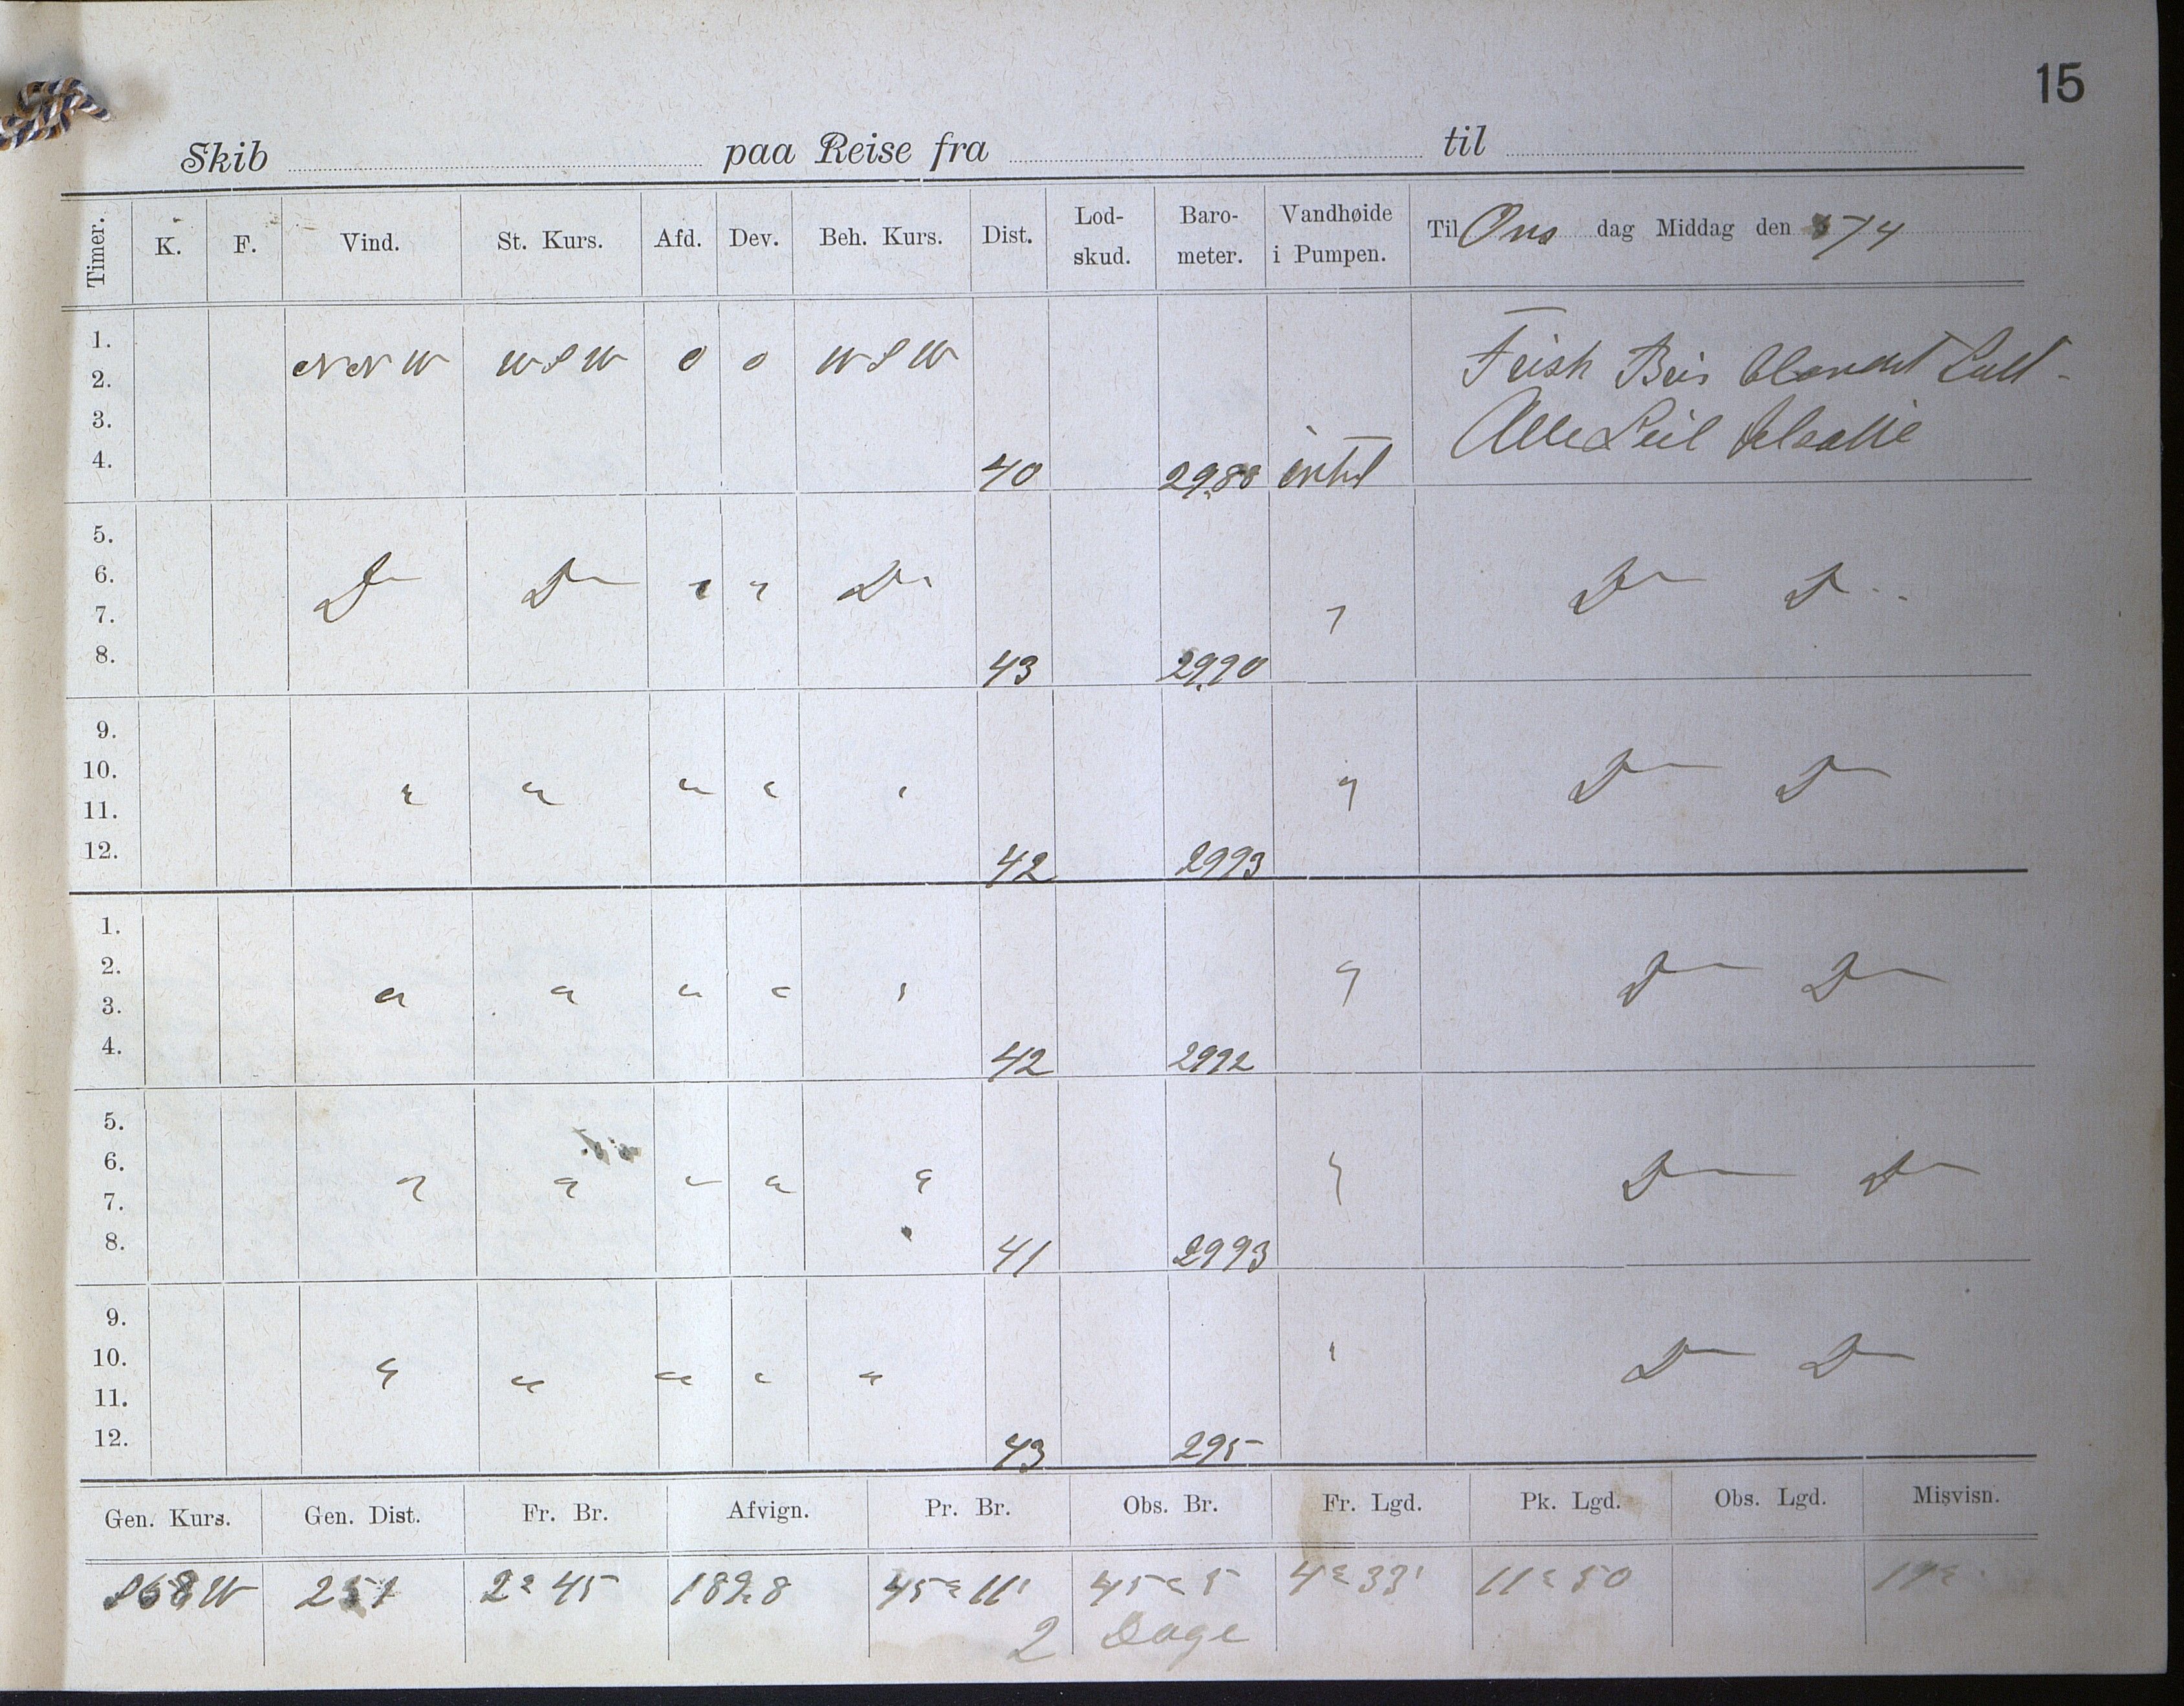 15
Skib paa Reise fra til
Timer. K. F. Vind. St. Kurs. Afd. Dev. Beh. Kurs. Dist. Lod-skud. Baro-meter. Vandhøide i Pumpen. Til Ons dag Middag den /4
1.
2. NNW WSW 0 0 WSW Frisk Bris blandet Luft
3. Alle Seil
4. 40 29.88
5.
6. D D " " D D D
7. "
8. 43 29.90
9.
10. " " " " " " D D
11.
12. 42 2993
1.
2. " D D
3. " " " " "
4. 42 2992
5.
6. " D D
7. " " " " "
8. 41 2993
9.
10. " " " " " " D D
11.
12. 43 295
Gen. Kurs. Gen. Dist. Fr. Br. Afvign. Pr. Br. Obs. Br. Fr. Lgd. Pk. Lgd. Obs. Lgd. Misvisn.
S68W 251 2° 45 189.8 45° 11' 45° 5 4° 33' 11° 50
2 Dage